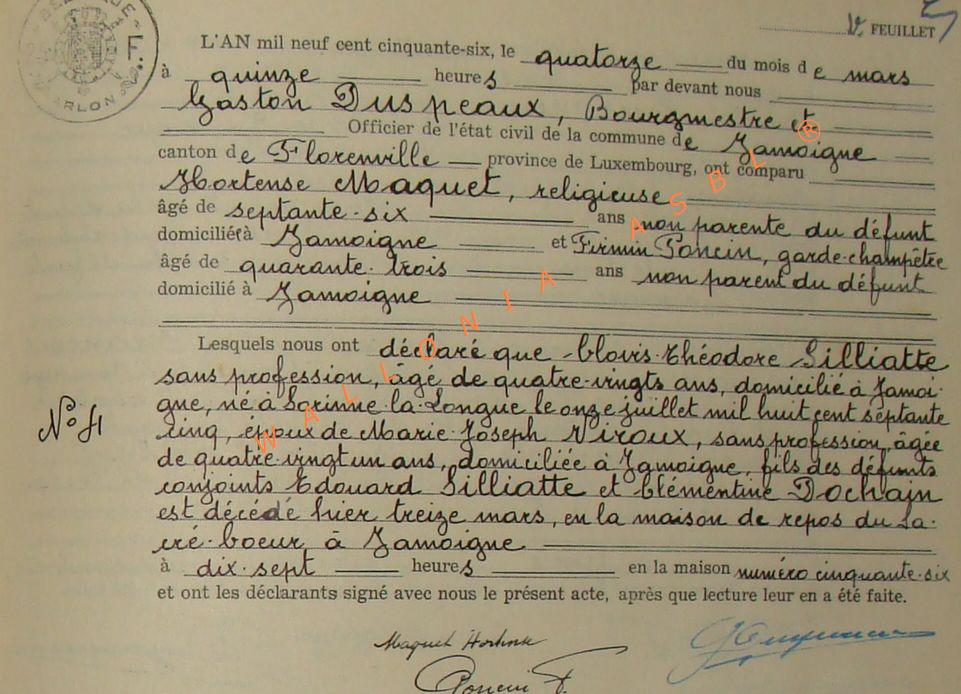 FEUILLET
L'AN mil neuf cent cinquante-six, le quatorze du mois de mars
à quinze heures par devant nous
Gaston Duspeaux, Bourgmestre et
Officier de l'état civil de la commune de Jamoigne
canton de Florenville province de Luxembourg, ont comparu
Hortense Maquet, religieuse
âgé de septante-six ans non parente du défunt
domicilié à Jamoigne et Firmin Poncin, garde-champêtre
âgé de quarante-trois ans non parent du défunt
domicilié à Jamoigne
Lesquels nous ont déclaré que Clovis-Théodore Silliatte
sans profession, âgé de quatre-vingts ans, domicilié à Jamoi-
gne, né à Sorinne-la-Longue le onze juillet mil huit cent septante
cinq, époux de Marie-Joseph Niroux, sans profession, âgée
N° 41
de quatre-vingt un ans, domiciliée à Jamoigne, fils des défunts
conjoints Edouard Silliatte et Clémentine Dochain
est décédé hier treize mars, en la maison de repos du Sa-
cré-Coeur à Jamoigne
à dix-sept heures en la maison numéro cinquante-six
et ont les déclarants signé avec nous le présent acte, après que lecture leur en a été faite.
Maquet Hortense
Poncin F.
WALLONIA ASBL ®
ARLON